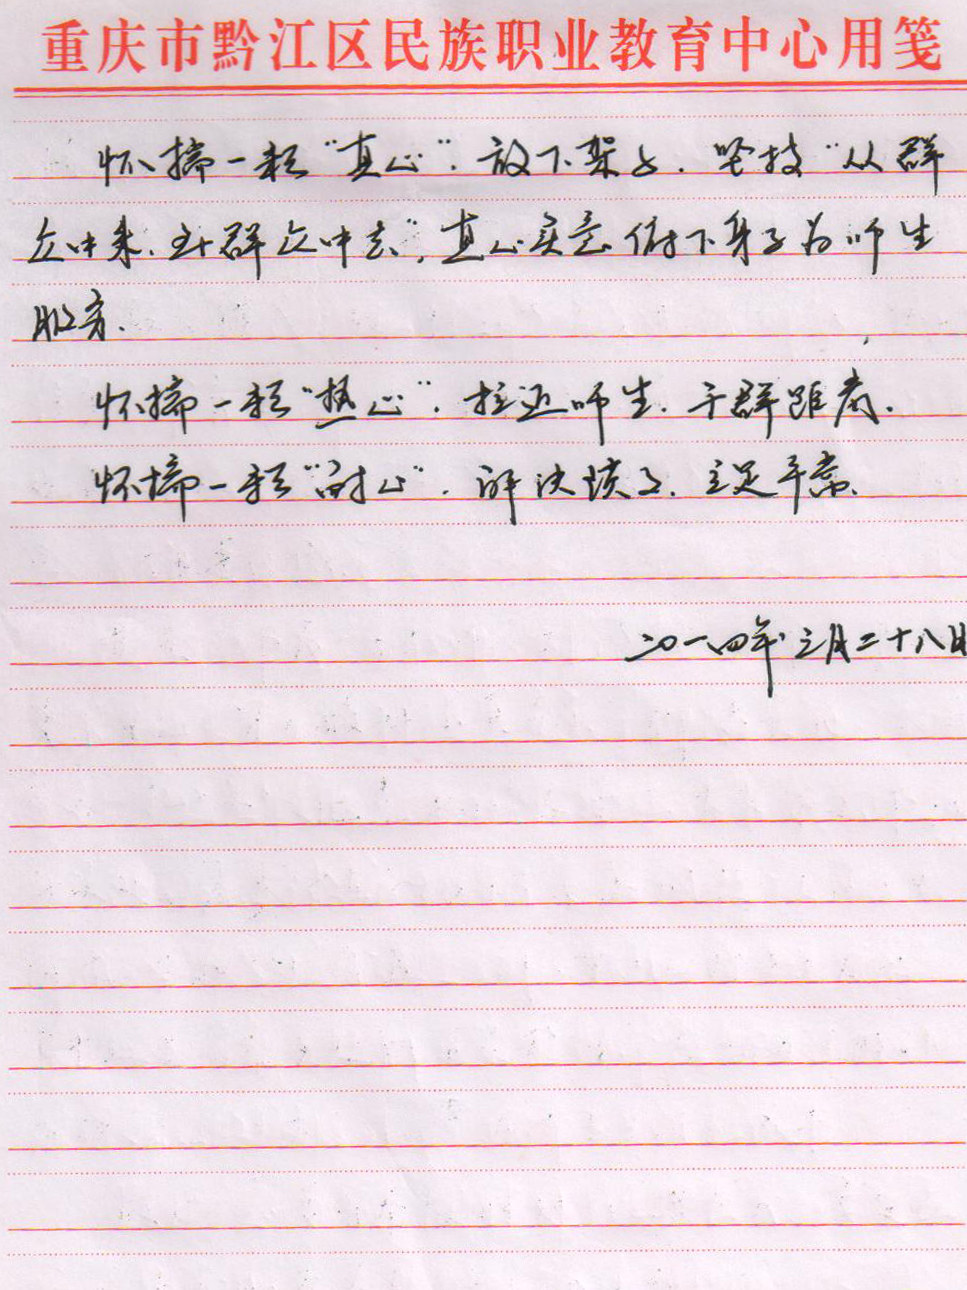 重庆市黔江区民族职业教育中心用笺
怀揣一颗“真心”.放下架子.坚持“从群
众中来.到群众中去”,真心实意俯下身子为师生
服务.
怀揣一颗“热心”.拉近师生.干群距离.
怀揣一颗“耐心”.解决误工.立足平常.
二〇一四年三月二十八日